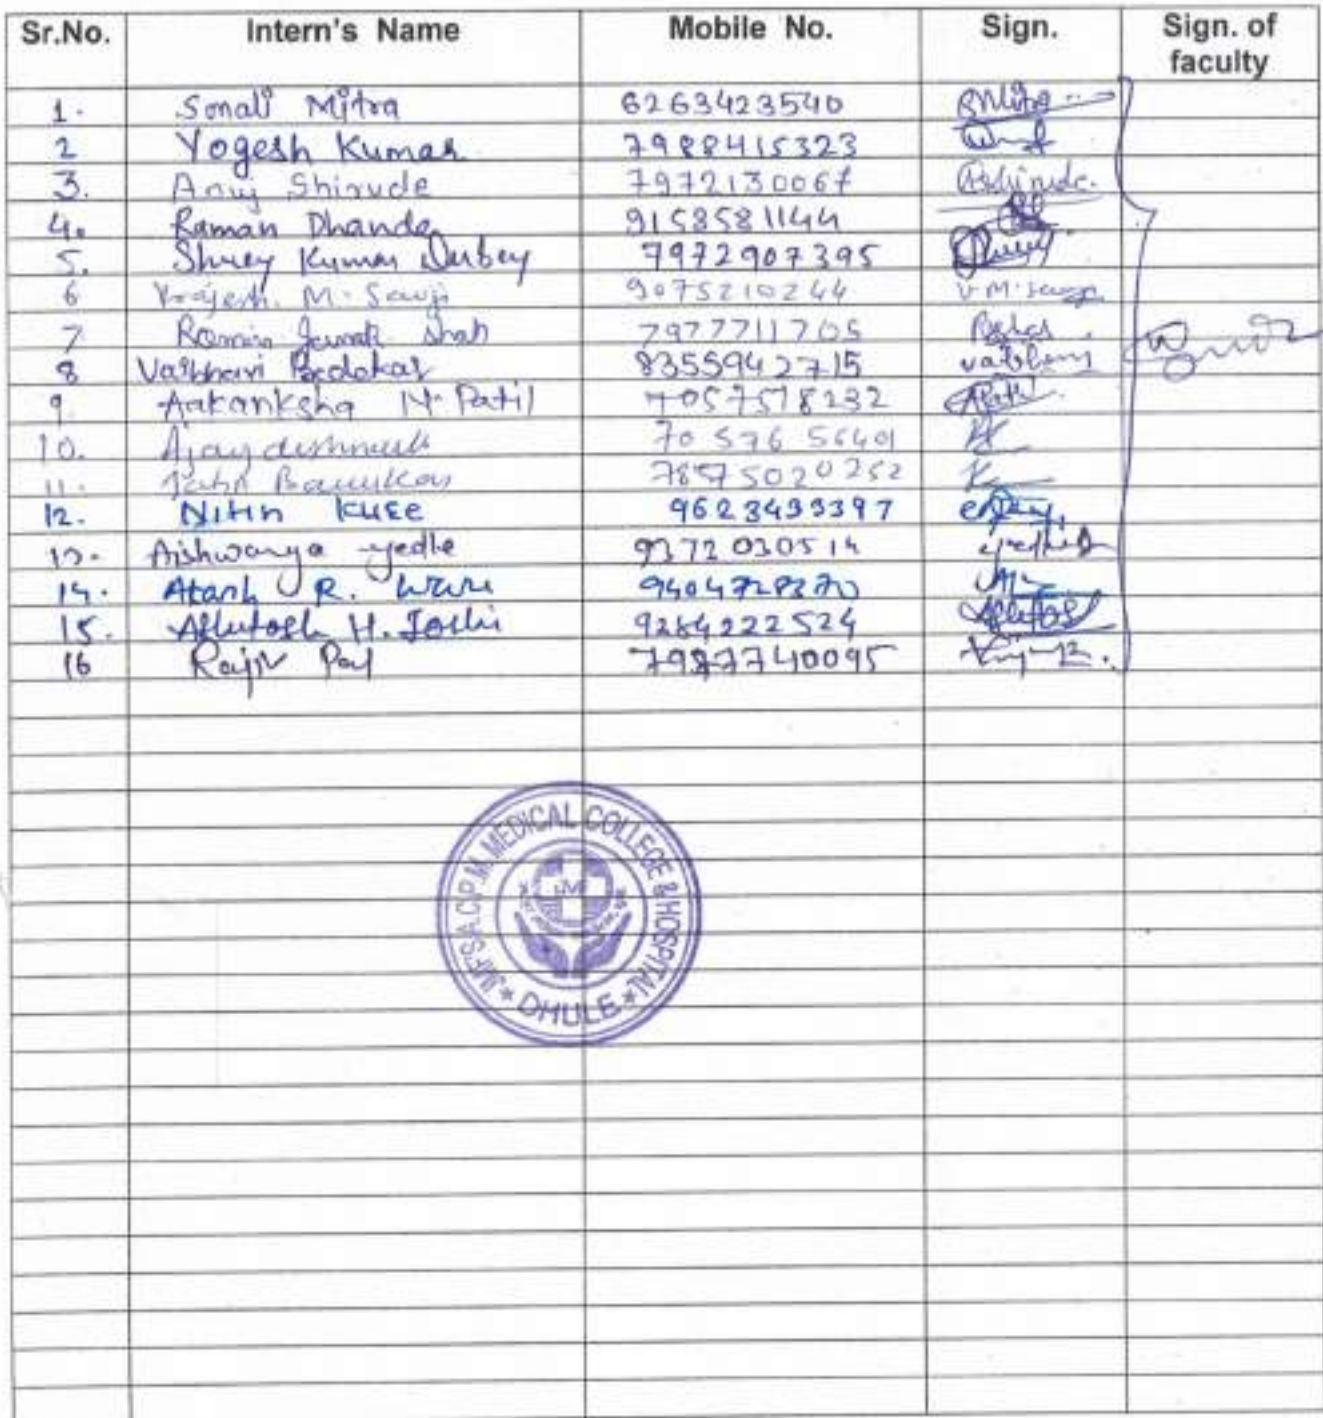 Sr.No. Intern's Name Mobile No. Sign. Sign. of faculty
1. Sonali Mitra 6263423540 SMitra
2 Yogesh Kumar 7988415323
3. Anuj Shirude 7972130067 AShirude.
4. Raman Dhanda 9158581144
5. Shrey Kumar Dubey 7972907395
6 Vrajesh. M. Savji 9075210244 V.M.Savji
7 Romin Shah 7977711705
8 Vaibhavi Bedekar 8355942715 vaibhavi
9. Aakanksha N. Patil 7057578232
10. Ajay deshmukh 70 576 56401
11. 7857 5020252
12. Nitin Kuse 9623433397
13. Aishwarya yedle 9372030514
14. R. 9404728370
15. Ashutosh H. Joshi 9284222524 Ashutosh
16 Rajiv Pal 7987740095
JMF'S A.C.P.M. MEDICAL COLLEGE & HOSPITAL
★ DHULE ★